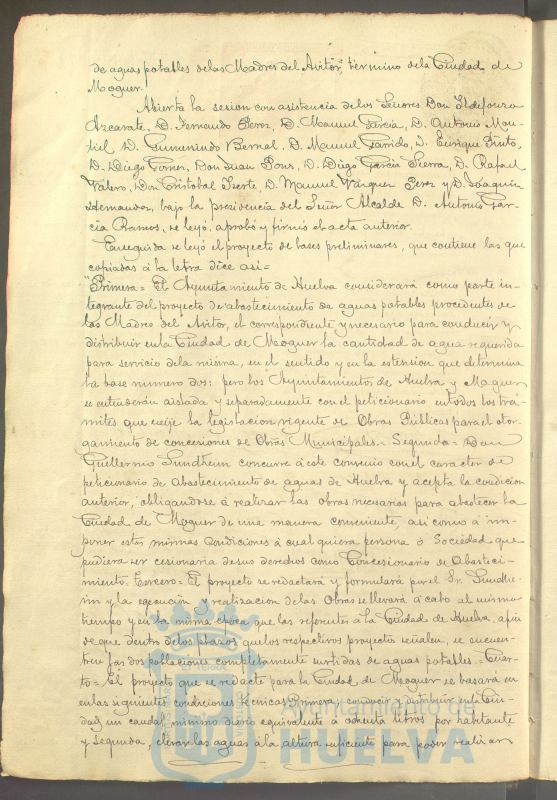 de aguas potables de las Madres del Avitor, término de la Ciudad de
Moguer.
Abierta la sesion con asistencia de los Señores Don Ildefonso
Azcarate, D. Fernando Perez, D. Manuel Garcia, D. Antonio Mon-
tiel, D. Gumersindo Bernal, D. Manuel Garrido, D. Enrique Pinto,
D. Diego Forner, Don Juan Pons, D. Diego Garcia Sierra, D. Rafael
Valero, Don Cristobal Iserte, D. Manuel Vazquez Perez y D. Joaquin
Hernandez, bajo la presidencia del Señor Alcalde D. Antonio Gar-
cia Ramos, se leyó, aprobó y firmó el acta anterior.
Enseguida se leyó el proyecto de bases preliminares, que contiene las que
copiadas á la letra dice asi=
"Primera= El Ayuntamiento de Huelva considerará como parte in-
tegrante del proyecto de abastecimiento de aguas potables procedentes de
las Madres del Avitor, el correspondiente y necesario para conducir y
distribuir en la Ciudad de Moguer la cantidad de agua requerida
para servicio de la misma, en el sentido y en la estension que determina
la base numero dos: pero los Ayuntamientos de Huelva y Moguer
se entenderán aislada y separadamente con el peticionario en todos los trá-
mites que exije la legislacion vigente de Obras Públicas para el otor-
gamiento de concesiones de Obras Municipales.= Segunda= Don
Guillermo Sundheim concurre á este convenio con el caracter de
peticionario de abastecimiento de aguas de Huelva y acepta la condicion
anterior, obligandose á realizar las obras necesarias para abastecer la
Ciudad de Moguer de una manera conveniente, asi como á im-
poner estas mismas condiciones á cualquiera persona ó Sociedad que
pudiera ser cesionaria de sus derechos como Concesionario de Abasteci-
miento. Tercero= El proyecto se redactará y formulará por el Sr. Sundhe-
im y la ejecucion y realizacion de las Obras se llevará á cabo al mismo
tiempo y en la misma época que las referentes á la Ciudad de Huelva, afin
de que dentro de los plazos que los respectivos proyectos señalen, se encuen-
tren las dos poblaciones completamente surtidas de aguas potables.= Cuar-
to= El proyecto que se redacte para la Ciudad de Moguer se basará en
en las siguientes condiciones técnicas Primera, conducir y distribuir en la Ciu-
dad, un caudal minimo diario equivalente á ochenta litros por habitante
y segunda, elevar las aguas á la altura suficiente para poder realizar
Ayuntamiento de
HUELVA